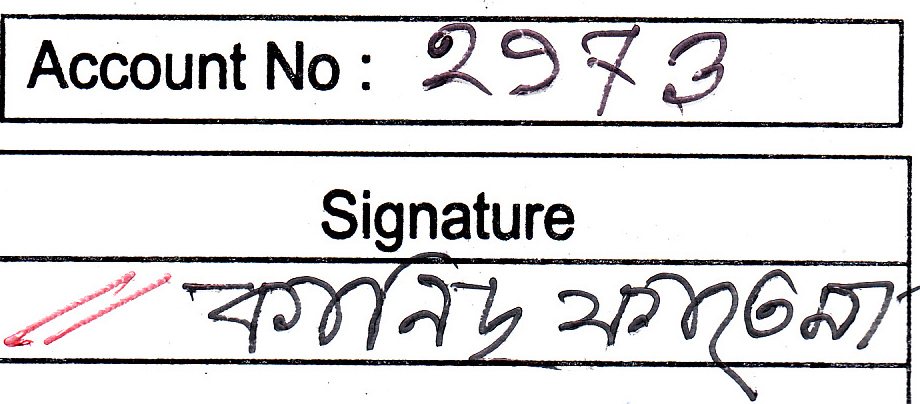 Account No : 2973
Signature
কানিজ ফাতেমা